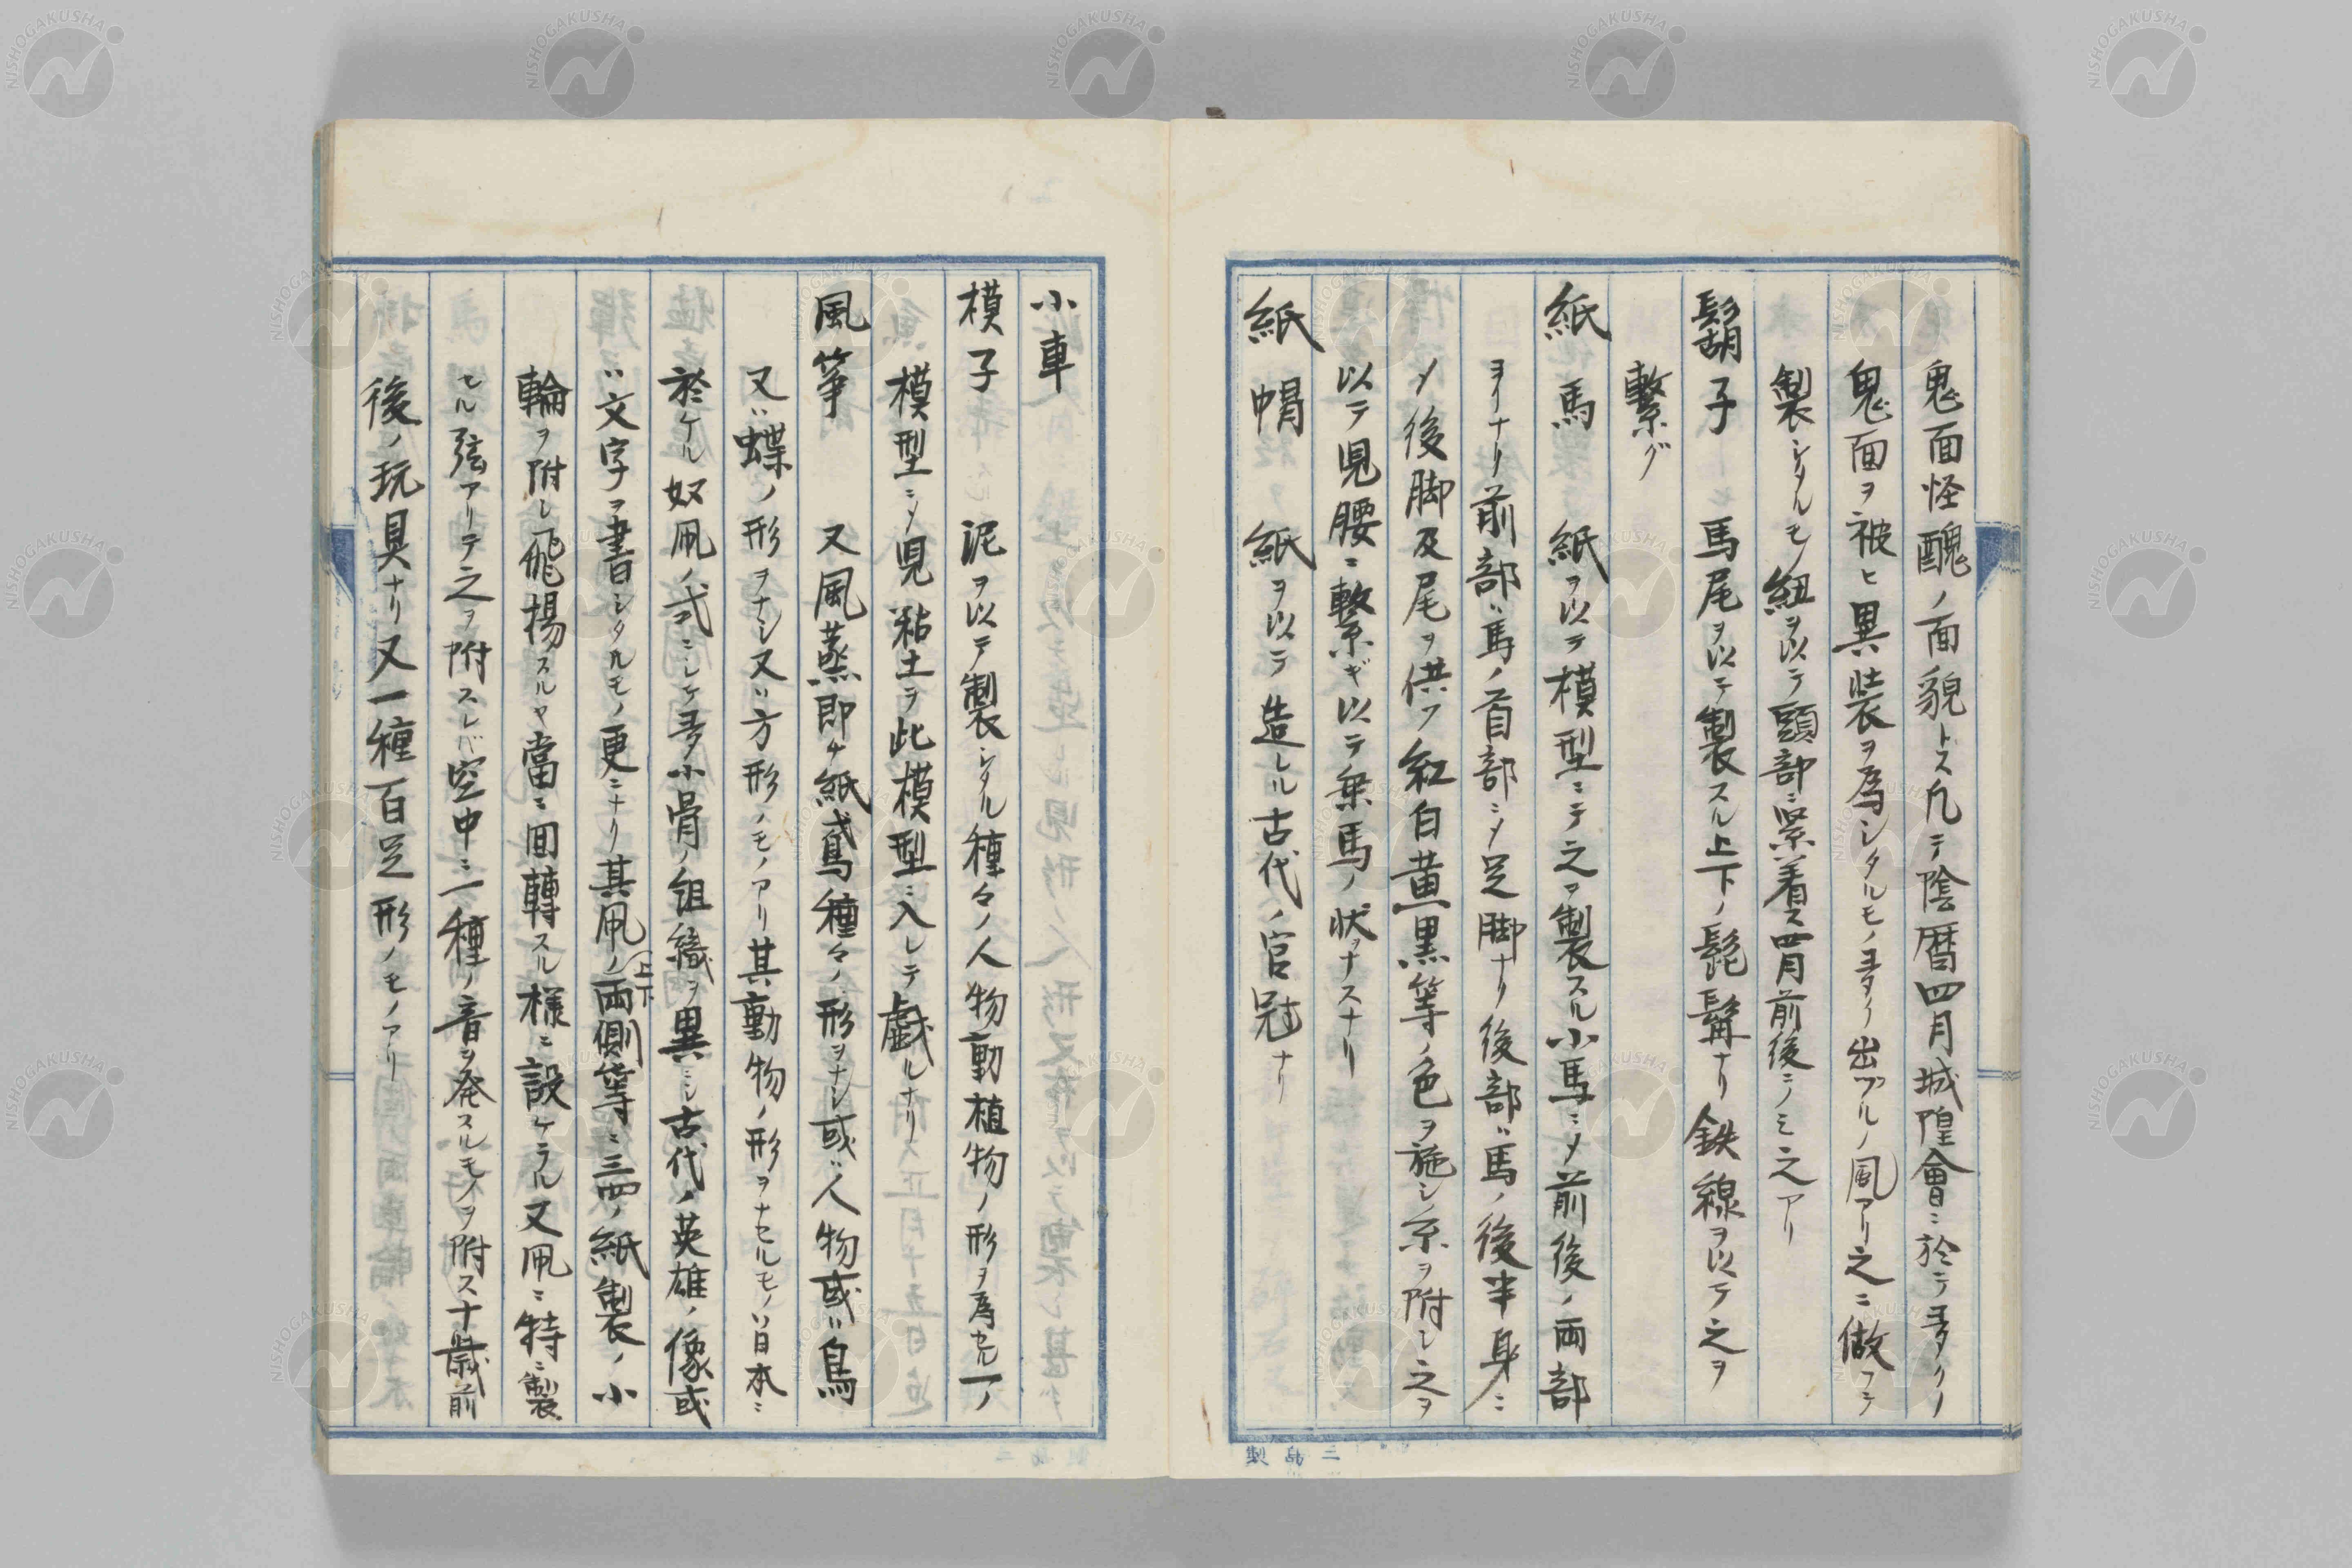 鬼面怪醜ノ面貌トス凡テ陰暦四月城隍會ニ於テ多クノ
鬼面ヲ被ヒ異装ヲ為シタルモノ多ク出ヅルノ風アリ之ニ倣フテ
製シタルモノ紐ヲ以テ頭部ニ緊着ス四月前後ニノミ之アリ
鬍子 馬尾ヲ以テ製スル上下ノ髭髯ナリ鉄線ヲ以テ之ヲ
繋グ
紙馬 紙ヲ以テ模型ニテ之ヲ製スル小馬ニメ前後ノ両部
ヲイナリ前部ハ馬ノ首部ニメ足脚ナリ後部ハ馬ノ後半身ニ
メ後脚及尾ヲ供フ紅白黄黒等ノ色ヲ施シ糸ヲ附シ之ヲ
以テ児腰ニ繋ギ以テ乗馬ノ状ヲナスナリ
紙帽 紙ヲ以テ造レル古代ノ官冠ナリ
小車
模子 泥ヲ以テ製シタル種々ノ人物動植物ノ形ヲ為セル一ノ
模型ニメ児粘土ヲ此模型ニ入レテ戯ルナリ
風筝 又風蒸即チ紙鳶種々ノ形ヲナシ或ハ人物或ハ鳥
又ハ蝶ノ形ヲナシ又ハ方形ノモノアリ其動物ノ形ヲナセルモノハ日本ニ
於ケル奴凧ノ式ニシテ多小骨ノ組織ヲ異ニシ古代ノ英雄ノ像或
ハ文字ヲ書シタルモノ更ニナリ其凧ノ(上下)両側等ニ三四ノ紙製ノ小
輪ヲ附シ飛揚スルヤ當ニ回轉スル様ニ設ケラル又凧ニ特ニ製
セル弦アリテ之ヲ附スレバ空中ニ一種ノ音ヲ発スルモノヲ附ス十歳前
後ノ玩具ナリ又一種百足形ノモノアリ